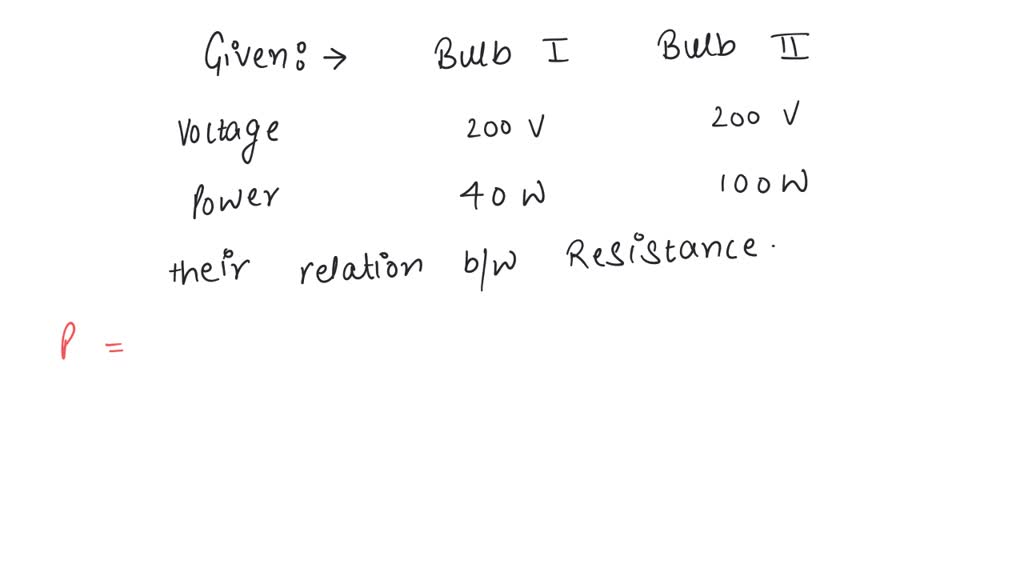 Given: → Bulb I Bulb II
Voltage 200 V 200 V
Power 40 W 100 W
their relation b/w Resistance.
P =